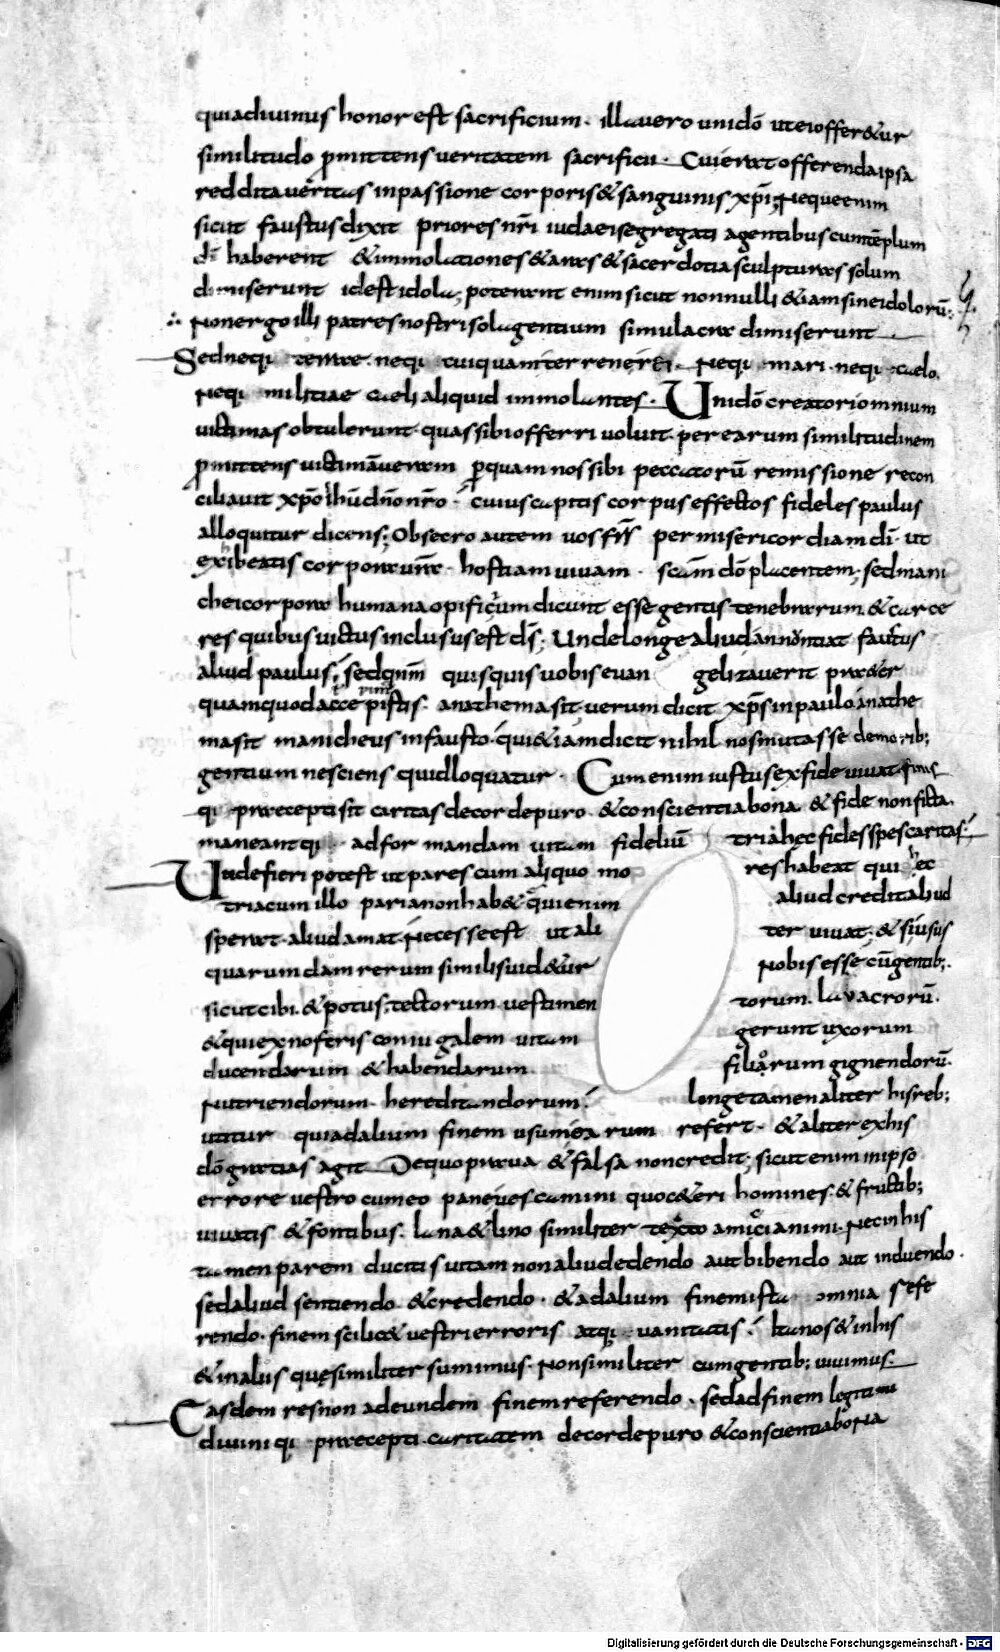 quiadiuinus honor est sacrificium · illa uero uni dō ut ei offer&ur
similitudo p̄mittens ueritatem sacrificii · Cui erat offerenda ipsa
reddita ueritas in passione corporis & sanguinis xp̄i; Neque enim
sicut faustus dixit priores nr̄i iudaei segregati a gentibus cum tēplum
dī haberent & immolationes & aras & sacerdotia sculpturas solum
dimiserunt id est idola; poterant enim sicut nonnulli & iam sine idolorū
Non ergo illi patres nostri sola gentium simulacra dimiserunt
Sed neq; terrae · neq; cuiquam terreneirei · Neq; mari · neq; caelo
Neq; militiae caeli aliquid immolantes · Uni dō creatori omnium
uictimas obtulerunt · quas sibi offerri uoluit · per earum similitudinem
p̄mittens uictimā ueram p̄ quam nos sibi peccatorū remissione recon
ciliauit xp̄o ihū dn̄o nr̄o · cuius capitis corpus effectos fideles paulus
alloquitur dicens; Obsecro autem uos fr̄s per misericordiam dī · ut
exhibeatis corpora ur̄a · hostiam uiuam · sc̄am dō placentem; sed mani
chei corpora humana opificium dicunt esse gentis tenebrarum & carce
res quibus uictus inclusus est ds̄; Unde longe aliud annontiat faustus
aliud paulus; sed qn̄m quisquis uobis euan gelizauerit praeter
quam quod accepistis · anathema sit · uerum dicit xp̄s in paulo · anathe
ma sit manicheus in fausto · qui & iam dicit nihil nos mutasse de morib;
gentium nesciens quid loquatur · Cum enim iustus ex fide uiuat · finis
q; praecepti sit caritas de corde puro · & conscientia bona & fide non ficta ·
maneant q; ad formandam uitam fidelium tria hęc fides spes caritas
Unde fieri potest ut pares cum aliquo mo res habeat qui hęc
tria cum illo paria non hab& qui enim aliud credit aliud
sperat · aliud amat · Necesse est ut ali ter uiuat · & si usus
quarumdam rerum similis uid&ur Nobis esse cū gentib;
sicut cibi · & potus; tectorum uestimen torum · lauacrorū ·
& qui ex nostris coniugalem uitam gerunt uxorum
ducendarum & habendarum filiorum gignendorū ·
Nutriendorum · hereditandorum; longe tamen aliter his reb;
utitur qui ad alium finem usum earum refert · & aliter ex his
dō gratias agit De quo praua & falsa non credit; sicut enim in ipso
errore uestro cum eo pane uescamini quo c&eri homines · & fructib;
uiuatis & fontibus · lana & lino similiter texto amiciamini · Nec in his
tamen parem ducitis uitam non aliud edendo aut bibendo aut induendo ·
sed aliud sentiendo & credendo · & ad alium finem ista omnia refe
rendo · finem scilic& uestri erroris atq; uanitatis; Ita nos & in his
& in aliis quę similiter sumimus · Non similiter cum gentib; uiuimus ·
Easdem res non ad eundem finem referendo · sed ad finem legitimi
diuini q; praecepti · caritatem de corde puro & conscientia bona
Digitalisierung gefördert durch die Deutsche Forschungsgemeinschaft - DFG